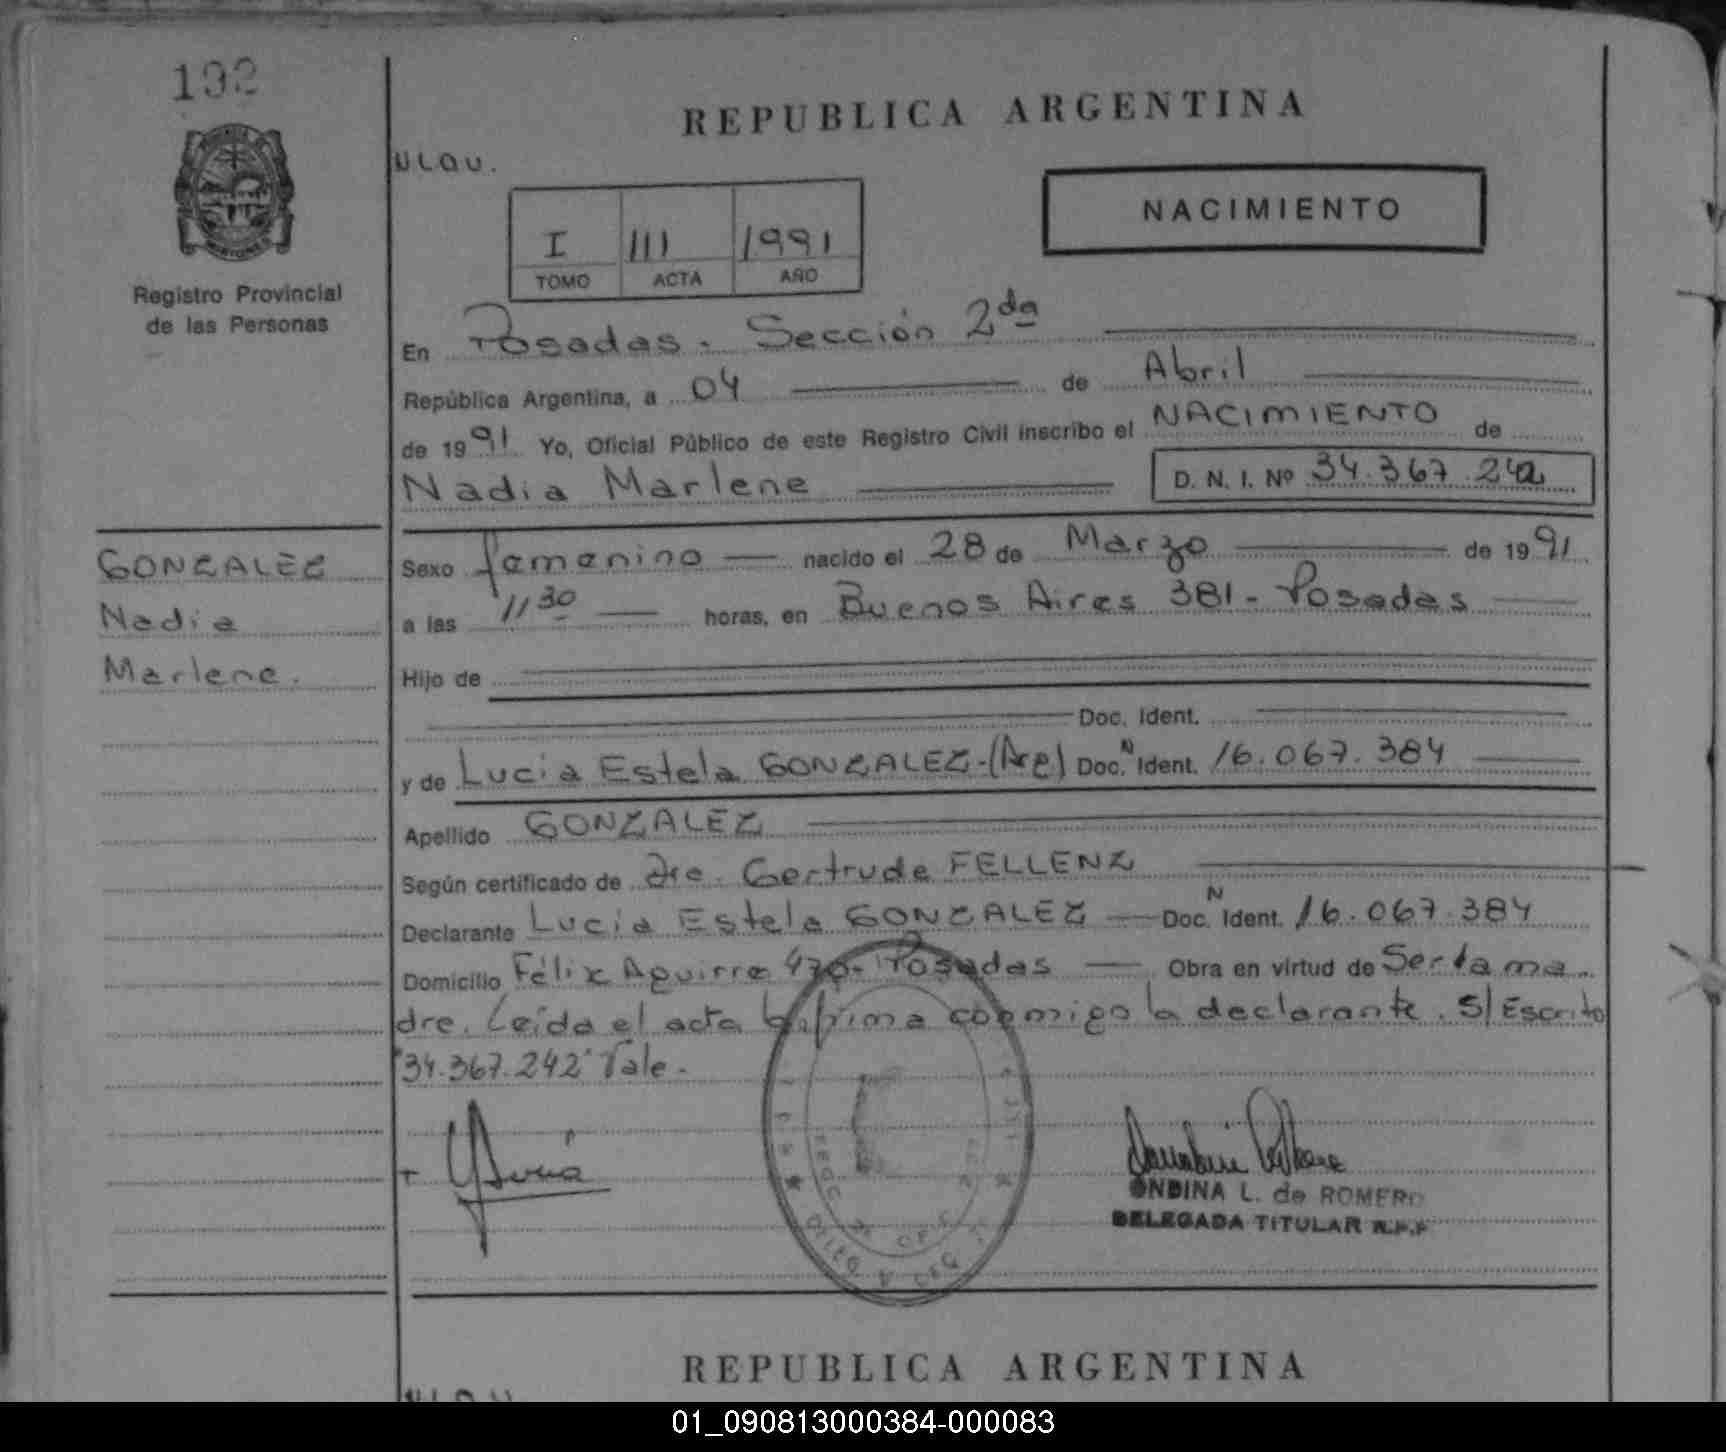 192
REPUBLICA ARGENTINA
NACIMIENTO
I 111 1991
TOMO ACTA AÑO
Registro Provincial
de las Personas
En Posadas. Sección 2da
República Argentina, a 04 de Abril
de 1991 Yo, Oficial Público de este Registro Civil inscribo el NACIMIENTO de
Nadia Marlene D. N. I. Nº 34.367.242
GONZALEZ
Nadia
Marlene.
Sexo femenino nacido el 28 de Marzo de 1991
a las 11 30 horas, en Buenos Aires 381 - Posadas
Hijo de
Doc. Ident.
y de Lucia Estela GONZALEZ-(Arg) Doc. N Ident. 16.067.384
Apellido GONZALEZ
Según certificado de Dra. Gertrude FELLENZ
Declarante Lucia Estela GONZALEZ Doc. N Ident. 16.067.384
Domicilio Félix Aguirre 470- Posadas Obra en virtud de Ser la ma-
dre. Leída el acta la firma conmigo la declarante. S/ Escrito
"34.367.242" Vale.-
ONDINA L. de ROMERO
DELEGADA TITULAR R.P.P
REPUBLICA ARGENTINA
01_090813000384-000083